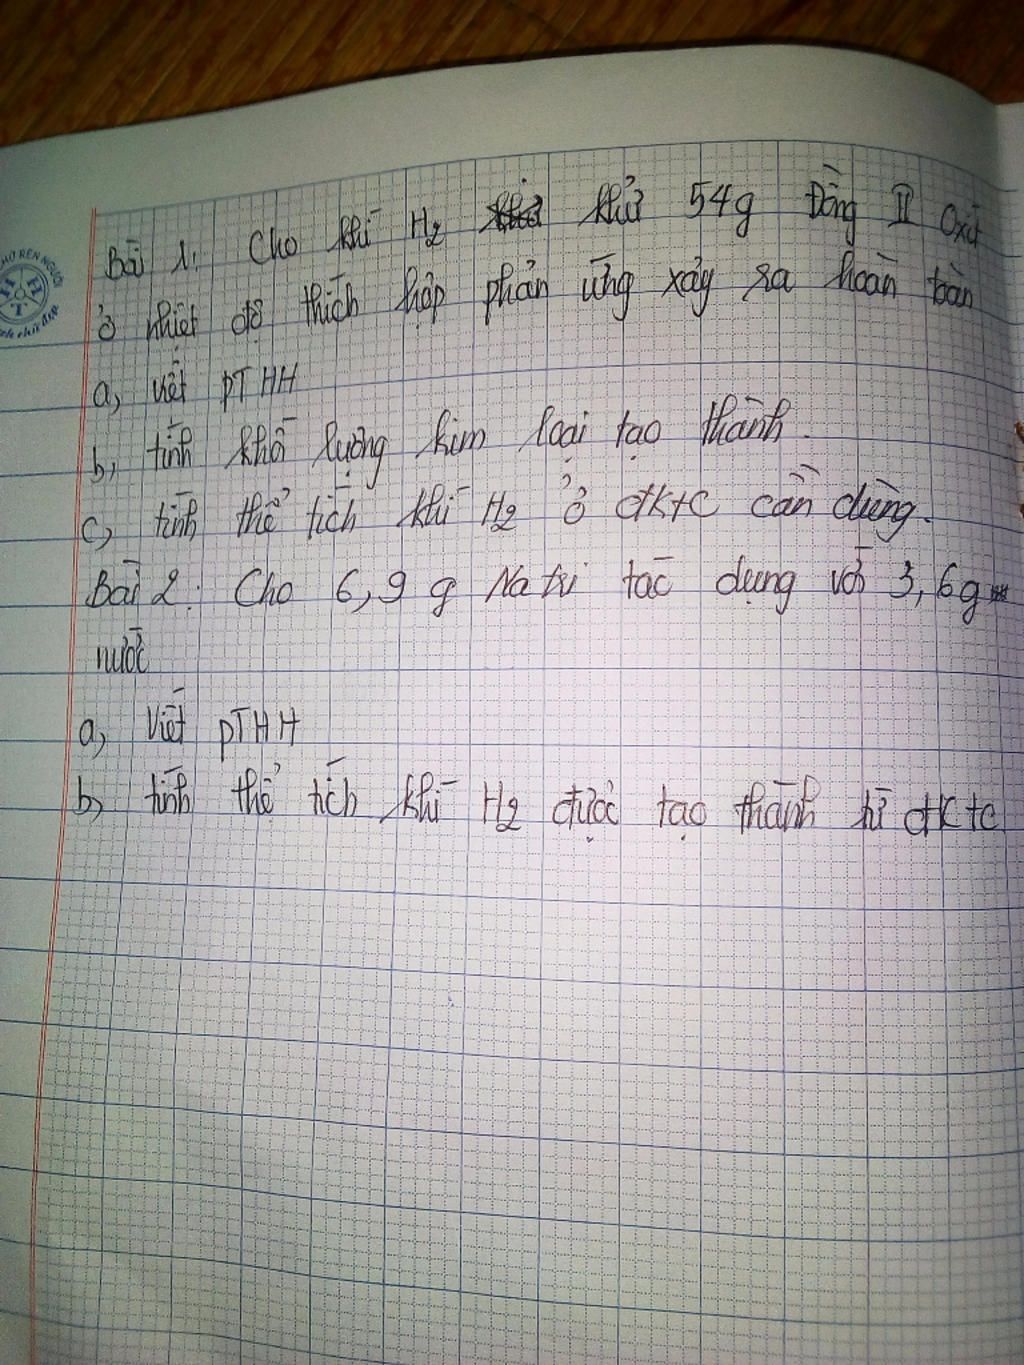 Bài 1. Cho khí H2 khử 54g Đồng II Oxit
ở nhiệt độ thích hợp phản ứng xảy ra hoàn toàn
a, viết PTHH
b, tính khối lượng kim loại tạo thành.
c, tính thể tích khí H2 ở đktc cần dùng.
Bài 2: Cho 6,9 g Na tri tác dụng với 3,6g
nước
a, Viết PTHH
b, tính thể tích khí H2 được tạo thành từ đktc